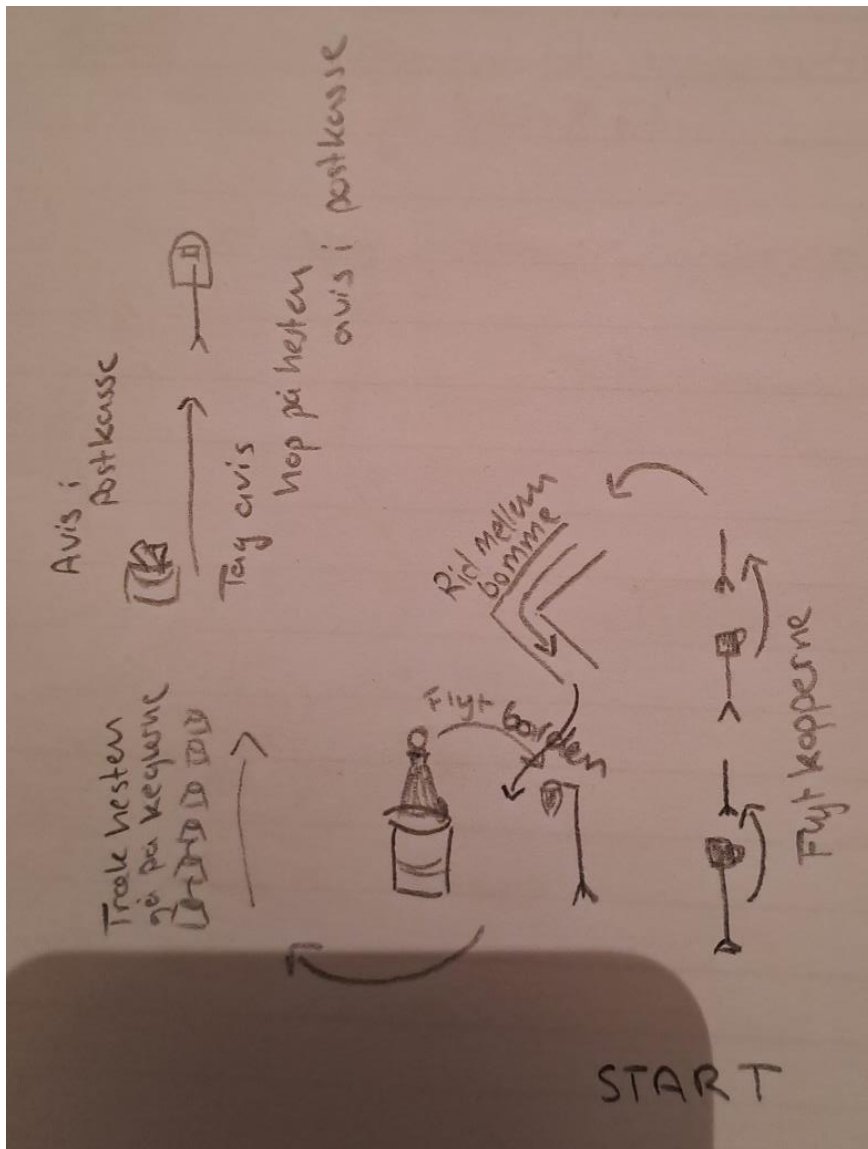 Avis i
postkasse
Tag avis
hop på hesten
avis i postkasse
Træk hesten
gå på keglerne
Rid mellem
bomme
Flyt
Flyt kopperne
START